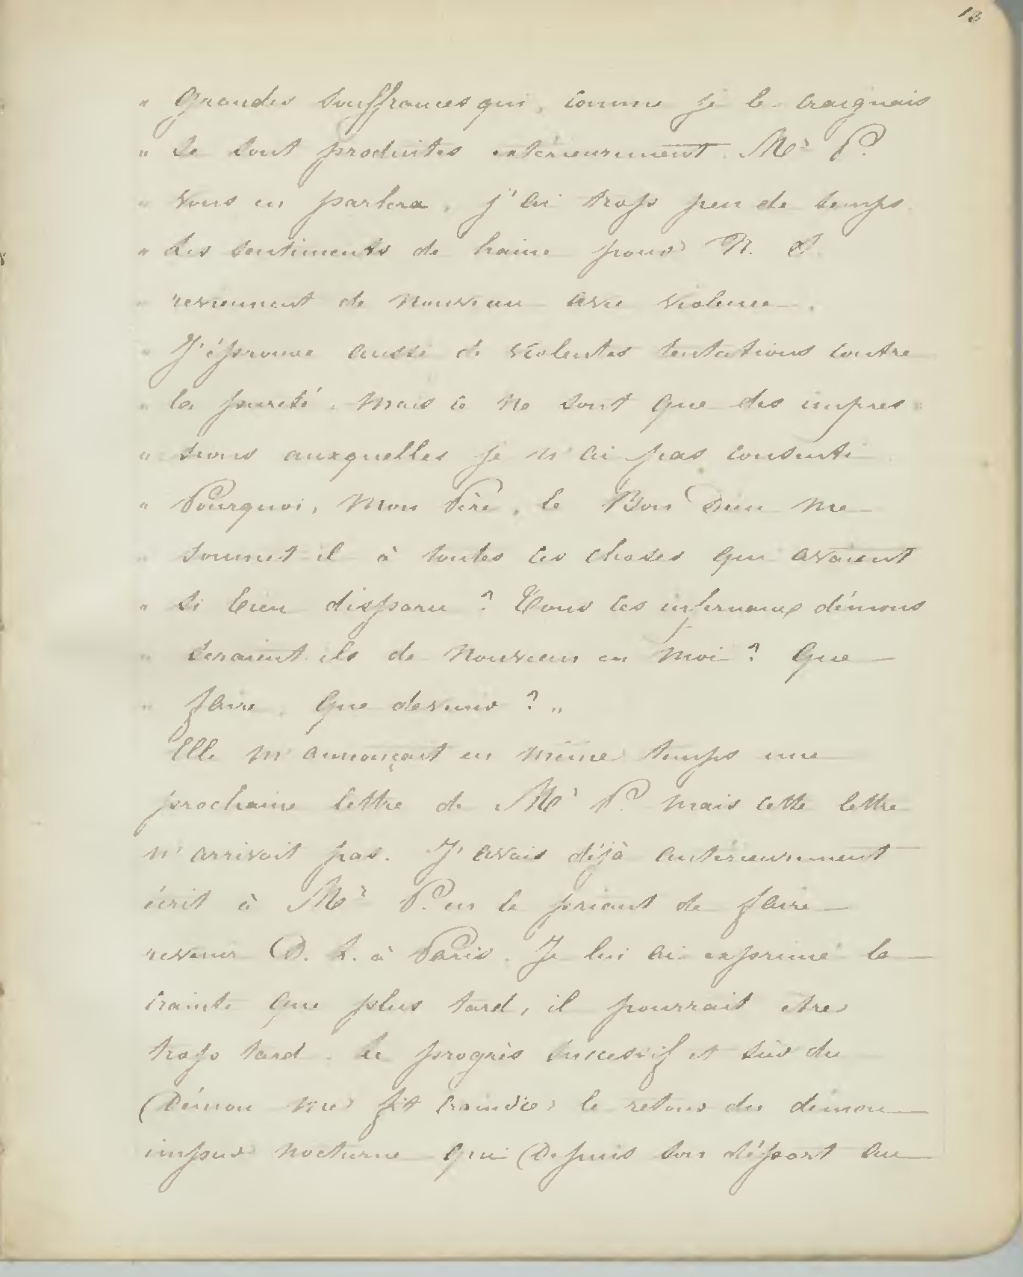 13
" Grandes souffrances qui, comme je le craignais
" se sont produites extérieurement. Mr P.
" vous en parlera, j'ai trop peu de temps.
" des sentiments de haine pour N. S.
" reviennent de nouveau avec violence.
" J'éprouve aussi de violentes tentations contre
" la pureté. Mais ce ne sont que des impres=
" sions auxquelles je n'ai pas consenti
" Pourquoi, Mon Père, le Bon Dieu me
" soumet-il à toutes ces choses qui avaient
" si bien disparu ? Tous ces infernaux démons
" seraient ils de nouveau en moi ? Que
" faire, Que devenir ? "
Elle m'annonçait en même temps une
prochaine lettre de Mr P. mais cette lettre
n'arrivait pas. J'avais déjà antérieurement
écrit à Mr P. en le priant de faire
revenir D. L. à Paris. Je lui ai exprimé la
crainte que plus tard, il pourrait etre
trop tard. Le progrès successif et sûr du
Démon me fit craindre le retour du démon
impur nocturne qui Depuis son départ au